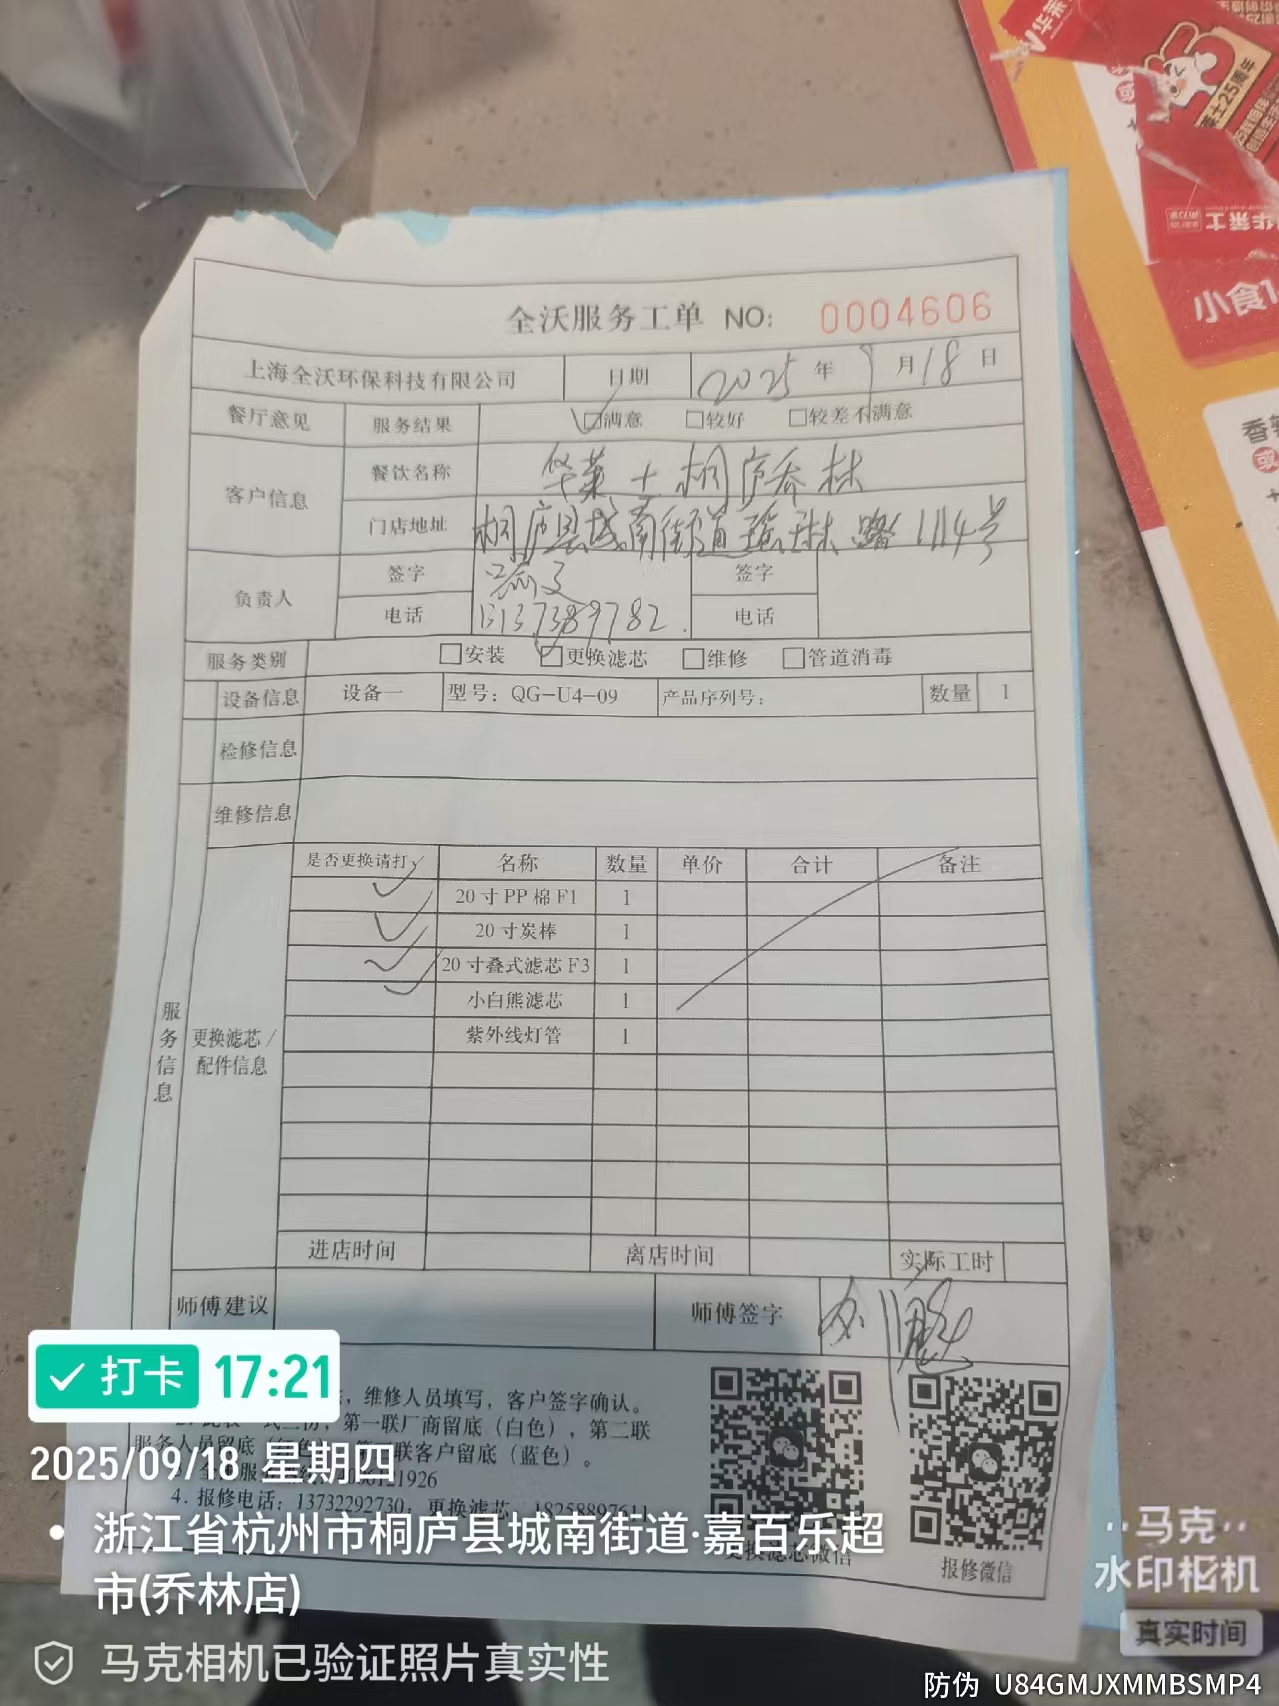 华莱士
25周年
华莱士
小食
全沃服务工单 NO: 0004606
上海全沃环保科技有限公司 日期 2025 年 9 月 18 日
餐厅意见 服务结果 ☑满意 □较好 □较差不满意
客户信息 餐饮名称 华莱士桐庐乔林
门店地址 桐庐县城南街道瑶琳路1114号
负责人 签字 签字
电话 13137389782. 电话
服务类别 □安装 ☑更换滤芯 □维修 □管道消毒
设备信息 设备一 型号: QG-U4-09 产品序列号: 数量 1
检修信息
维修信息
是否更换请打√ 名称 数量 单价 合计 备注
✓ 20寸PP棉F1 1
✓ 20寸炭棒 1
✓ 20寸叠式滤芯F3 1
✓ 小白熊滤芯 1
紫外线灯管 1
服务信息
更换滤芯/
配件信息
进店时间 离店时间 实际工时
师傅建议 师傅签字
,维修人员填写,客户签字确认。
第一联厂商留底(白色),第二联
服务人员留底 联客户留底(蓝色)。
121926
4. 报修电话: 13732292730, 更换滤芯 18258897611
更换滤芯微信 报修微信
打卡 17:21
2025/09/18 星期四
浙江省杭州市桐庐县城南街道·嘉百乐超
市(乔林店)
马克相机已验证照片真实性
马克
水印相机
真实时间
防伪 U84GMJXMMBSMP4